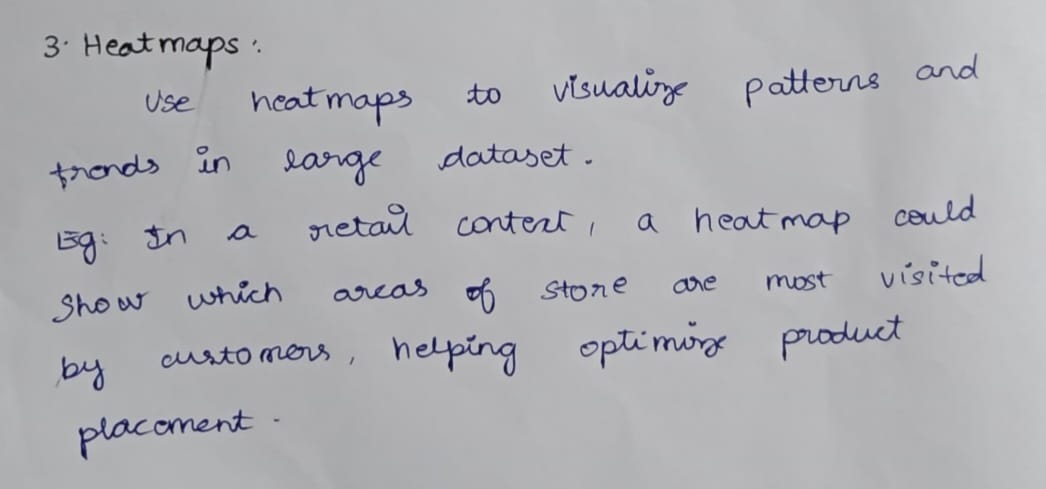 3. Heatmaps :
Use heatmaps to visualize patterns and
trends in large dataset.
Eg: In a retail context, a heatmap could
Show which areas of store are most visited
by customers, helping optimize product
placement.